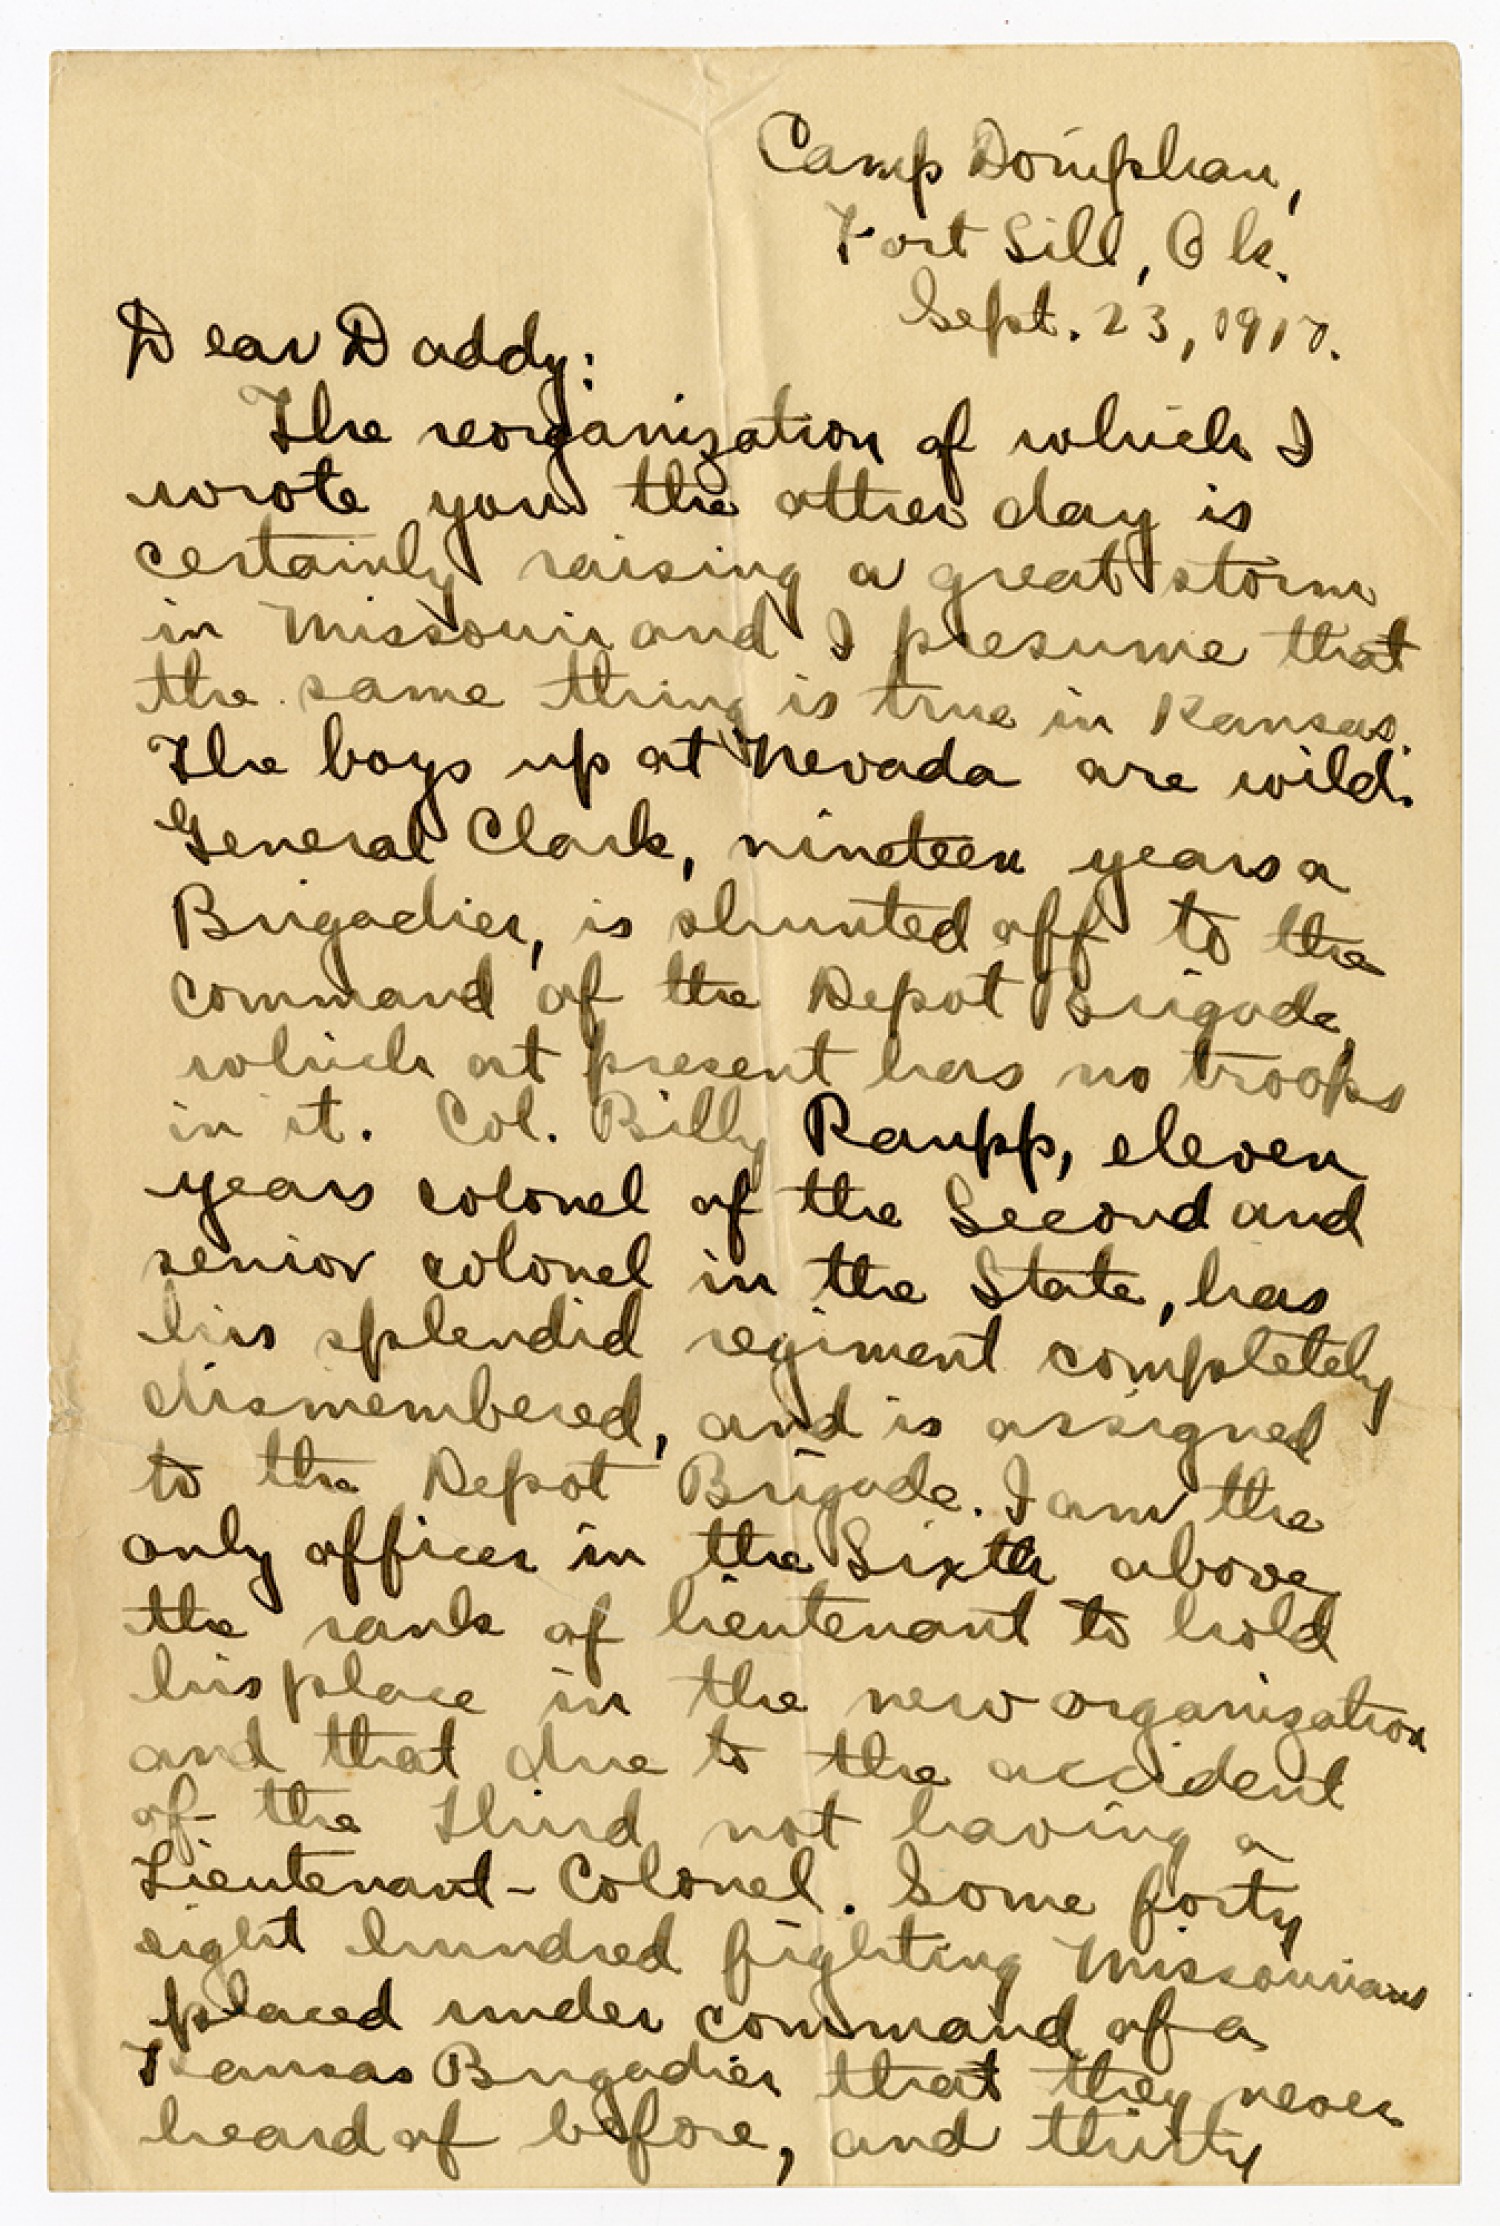 Camp Doniphan,
Fort Sill, Ok.
Sept. 23, 1917.
Dear Daddy:
The reorganization of which I
wrote you the other day is
certainly raising a great storm
in Missouri and I presume that
the same thing is true in Kansas.
The boys up at Nevada are wild.
General Clark, nineteen years a
Brigadier, is shunted off to the
command of the Depot Brigade,
which at present has no troops
in it. Col. Billy Raupp, eleven
years colonel of the Second and
senior colonel in the State, has
his splendid regiment completely
dismembered, and is assigned
to the Depot Brigade. I am the
only officer in the Sixth above
the rank of lieutenant to hold
his place in the new organization
and that due to the accident
of the Third not having a
Lieutenant-Colonel. Some forty
eight hundred fighting Missourians
placed under command of a
Kansas Brigadier that they never
heard of before, and thirty